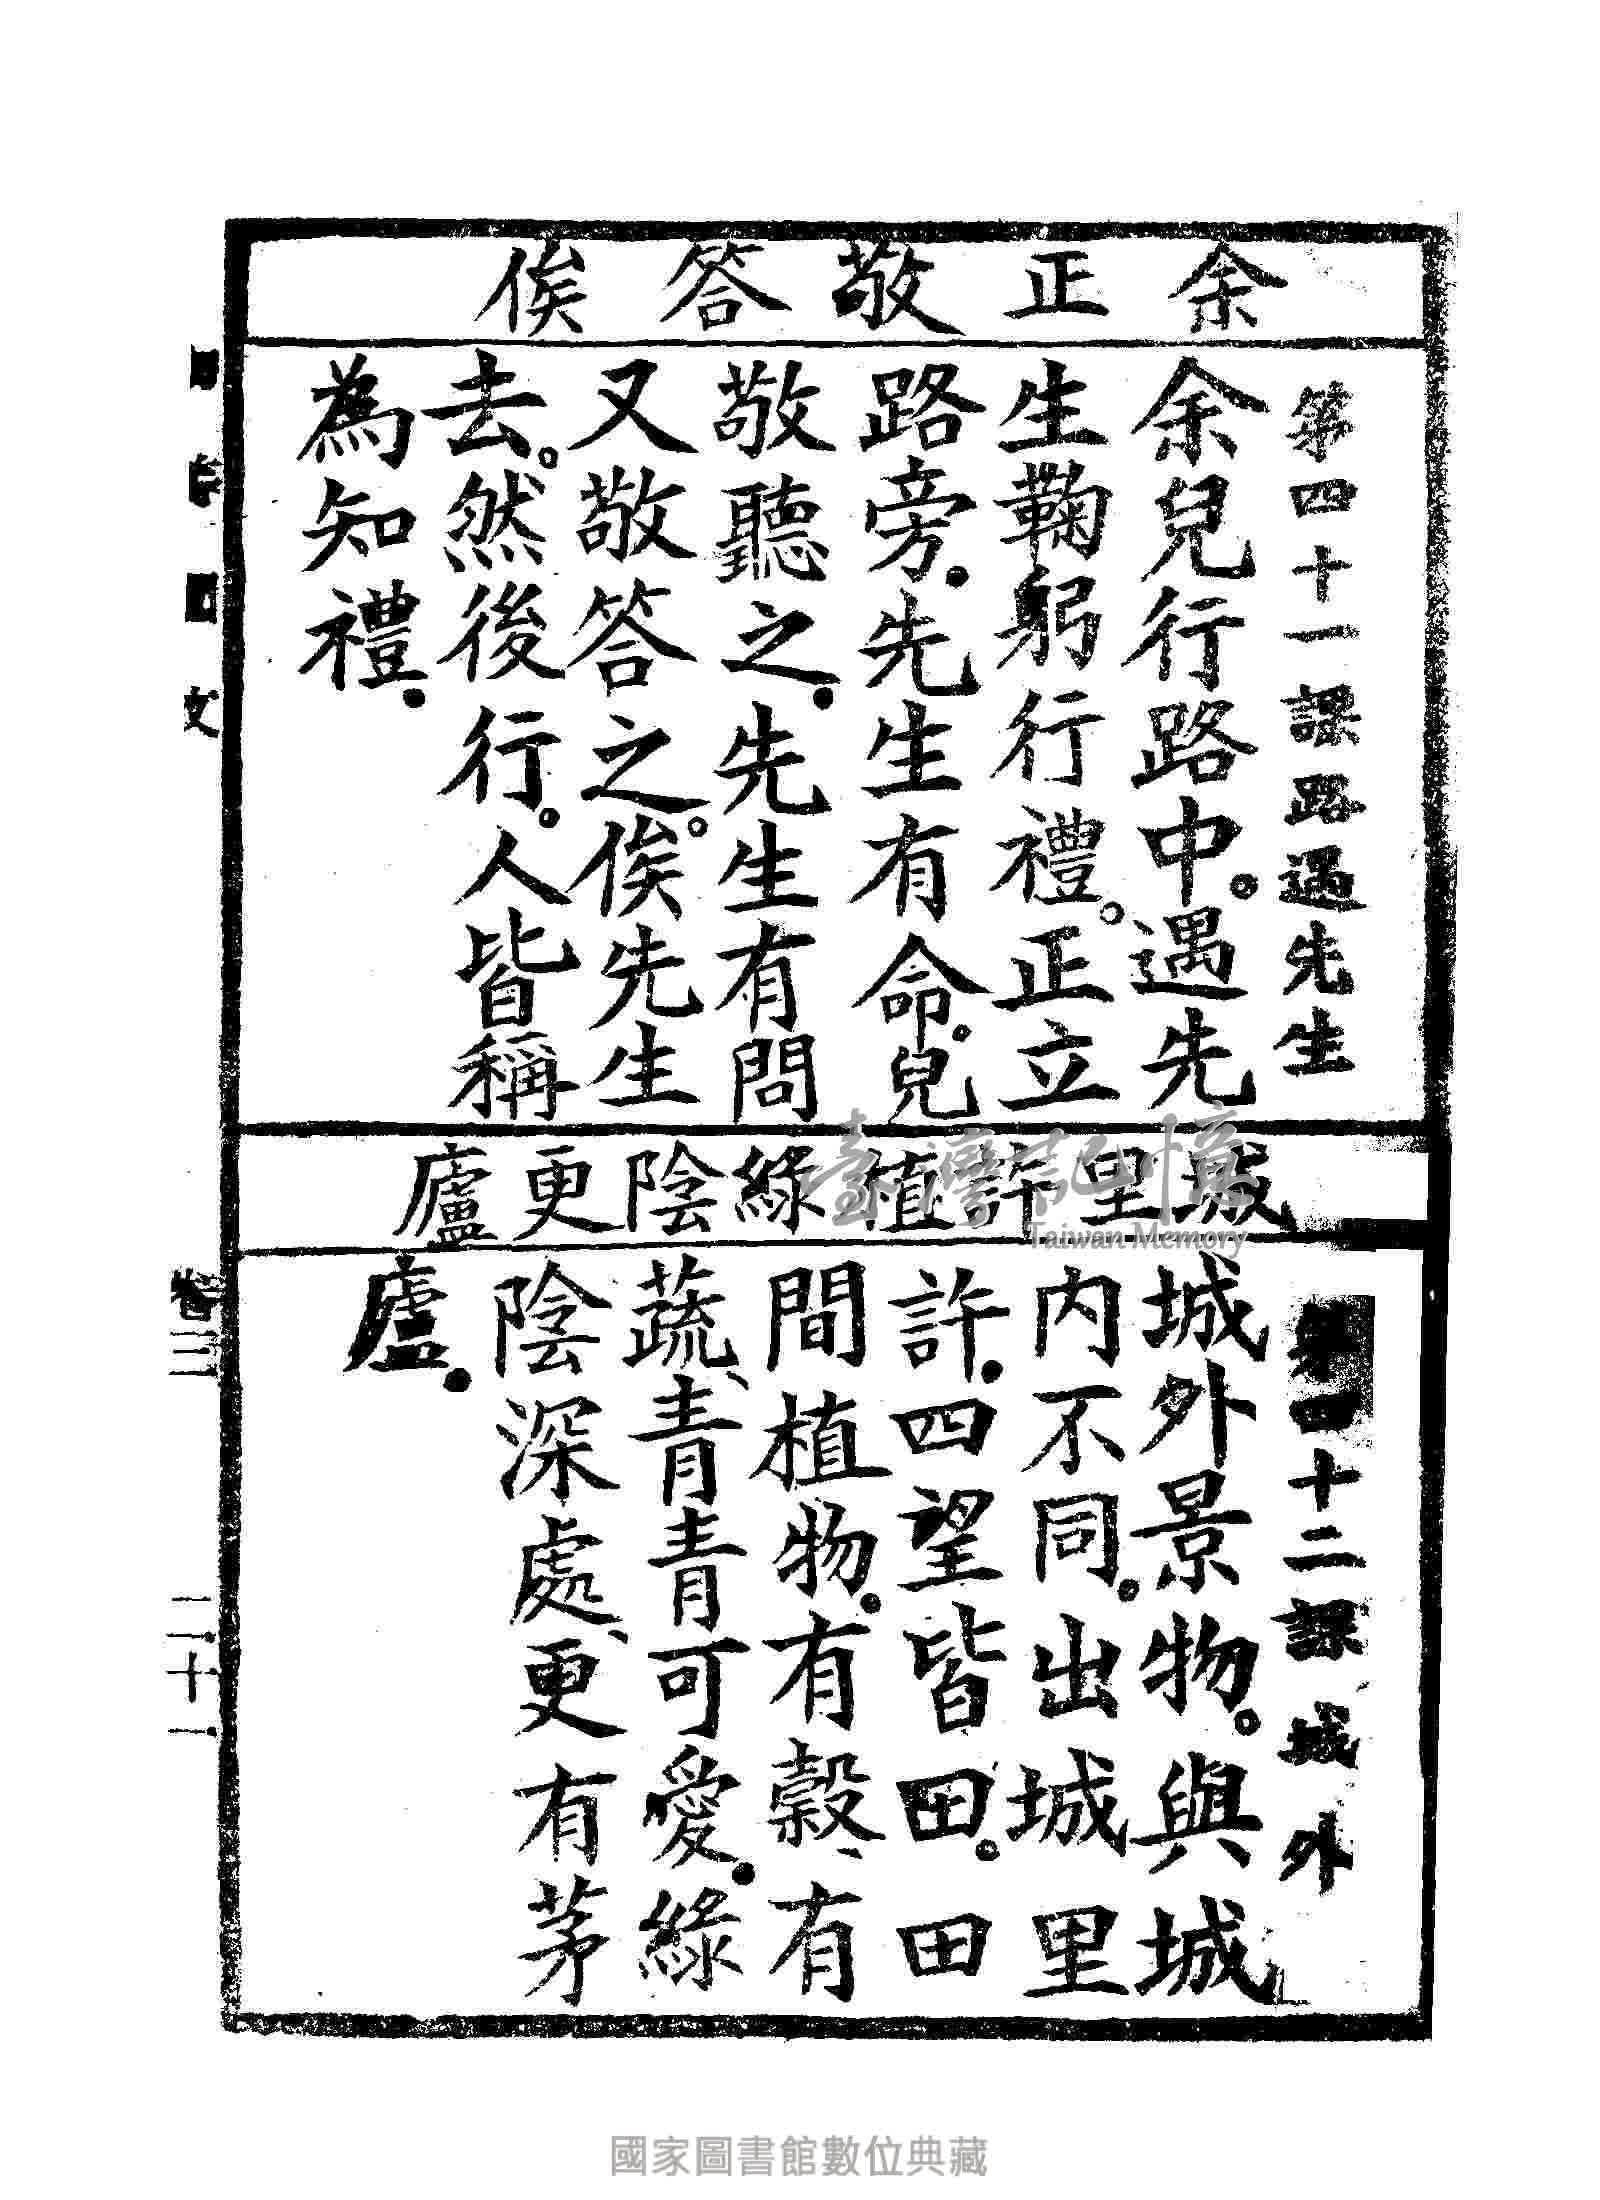 余正敬答俟
第四十一課路遇先生
余兒行路中。遇先
生鞠躬行禮。正立
路旁。先生有命。兒
敬聽之。先生有問
又敬答之。俟先生
去。然後行。人皆稱
為知禮。
城里許植綠陰更廬
第四十二課城外
城外景物。與城
内不同。出城里
許。四望皆田。田
間植物。有穀、有
蔬、青青可愛。綠
陰深處、更有茅
廬。
文
卷三
二十一
臺灣記憶
Taiwan Memory
國家圖書館數位典藏